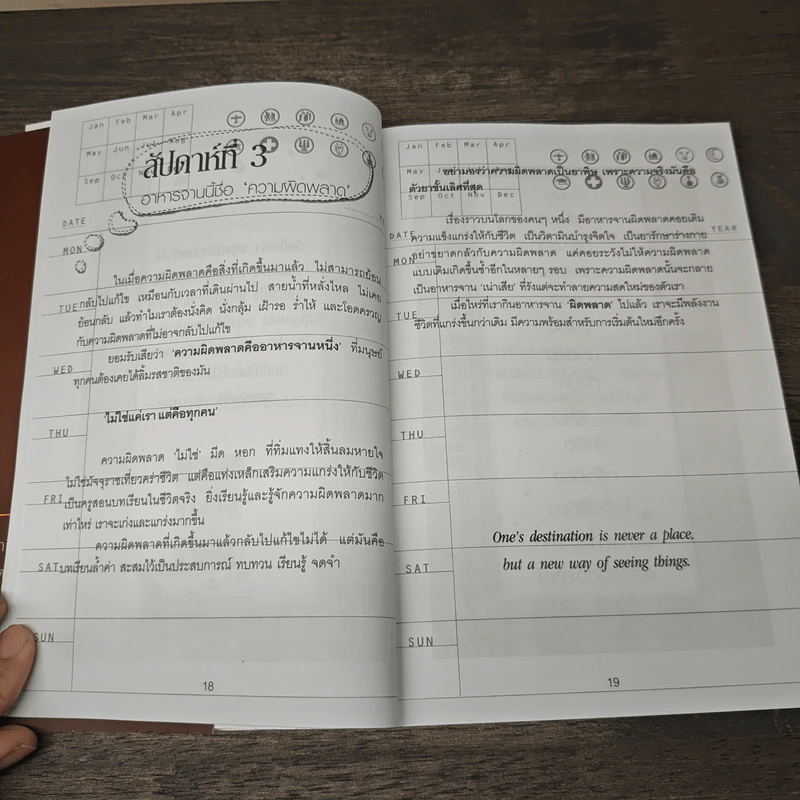 Jan Feb Mar Apr
May Jun Jul Aug
Sep Oct
สัปดาห์ที่ 3
อาหารจานนี้ชื่อ 'ความผิดพลาด'
DATE
MON
ในเมื่อความผิดพลาดคือสิ่งที่เกิดขึ้นมาแล้ว ไม่สามารถย้อน
TUE กลับไปแก้ไข เหมือนกับเวลาที่เดินผ่านไป สายน้ำที่หลั่งไหล ไม่เคย
ย้อนกลับ แล้วทำไมเราต้องนั่งคิด นั่งกลุ้ม เฝ้ารอ ร่ำไห้ และโอดครวญ
กับความผิดพลาดที่ไม่อาจกลับไปแก้ไข
ยอมรับเสียว่า 'ความผิดพลาดคืออาหารจานหนึ่ง' ที่มนุษย์
WED
ทุกคนต้องเคยได้ลิ้มรสชาติของมัน
'ไม่ใช่แค่เรา แต่คือทุกคน'
THU
ความผิดพลาด 'ไม่ใช่' มีด หอก ที่ทิ่มแทงให้สิ้นลมหายใจ
ไม่ใช่มัจจุราชเที่ยวคร่าชีวิต แต่คือแท่งเหล็กเสริมความแกร่งให้กับชีวิต
FRI เป็นครูสอนบทเรียนในชีวิตจริง ยิ่งเรียนรู้และรู้จักความผิดพลาดมาก
เท่าไหร่ เราจะเก่งและแกร่งมากขึ้น
ความผิดพลาดที่เกิดขึ้นมาแล้วกลับไปแก้ไขไม่ได้ แต่มันคือ
SAT บทเรียนล้ำค่า สะสมไว้เป็นประสบการณ์ ทบทวน เรียนรู้ จดจำ
SUN
18
Jan Feb Mar Apr
May
อย่ามองว่าความผิดพลาดเป็นยาพิษ เพราะความจริงมันคือ
ตัวยาชั้นเลิศที่สุด
Sep Oct Nov Dec
เรื่องราวบนโลกของคนๆ หนึ่ง มีอาหารจานผิดพลาดคอยเติม
DATE ความแข็งแกร่งให้กับชีวิต เป็นวิตามินบำรุงจิตใจ เป็นยารักษาร่างกาย YEAR
อย่าขยาดกลัวกับความผิดพลาด แค่คอยระวังไม่ให้ความผิดพลาด
MON แบบเดิมเกิดขึ้นซ้ำอีกในหลายๆ รอบ เพราะความผิดพลาดนั้นจะกลาย
เป็นอาหารจาน 'เน่าเสีย' ที่รังแต่จะทำลายความสดใหม่ของตัวเรา
เมื่อไหร่ที่เรากินอาหารจาน 'ผิดพลาด' ไปแล้ว เราจะมีพลังงาน
TUE ชีวิตที่แกร่งขึ้นกว่าเดิม มีความพร้อมสำหรับการเริ่มต้นใหม่อีกครั้ง
WED
THU
FRI
One's destination is never a place,
but a new way of seeing things.
SAT
SUN
19